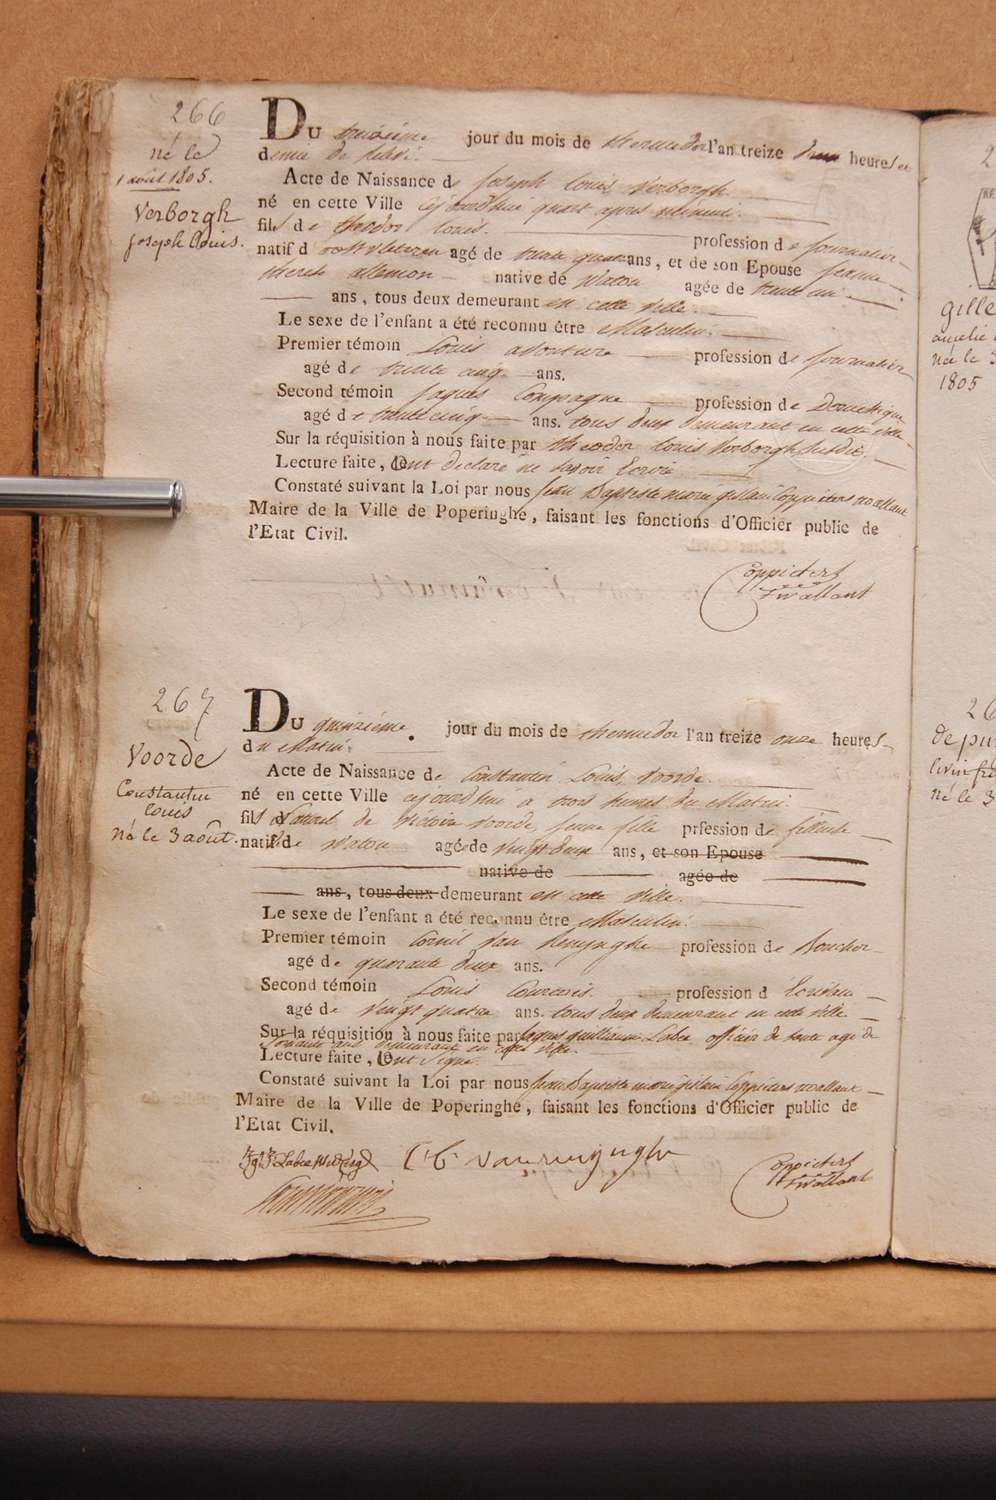 266
né le
1 août 1805.
Verborgh
joseph louis.
Du treizième jour du mois de thermidor l'an treize deux heures et
demie de relevé.
Acte de Naissance de Joseph Louis Verborgh
né en cette Ville cejourdhui quart apres minuit.
fils de theodor louis. profession de journalier
natif d agé de trente quatre ans, et de son Epouse jeanne
therese allemon native de Watou agée de trente un
ans, tous deux demeurant en cette ville.
Le sexe de l'enfant a été reconnu être Masculin.
Premier témoin Louis profession de journalier
agé de trente cinq ans.
Second témoin Jaques Compagne profession de Domestique
agé de trente cinq ans. tous deux demeurant en cette ville
Sur la réquisition à nous faite par theodor louis Verborgh susdit.
Lecture faite, Ont declaré ne savoir Ecrire
Constaté suivant la Loi par nous Jean Baptiste marie gislain Coppieters wallant
Maire de la Ville de Poperinghe, faisant les fonctions d'Officier public de
l'Etat Civil.
Coppieters
Wallant
267
Voorde
Constantin
louis
né le 3 août.
Du quinzième jour du mois de thermidor l'an treize onze heures
du Matin.
Acte de Naissance de Constantin Louis Voorde.
né en cette Ville cejourdhui a trois heures du Matin.
fils Naturel de Victoire Voorde, jeune fille prfession de fileuse
natif de Watou agé de vingt deux ans, et son Epouse
native de agée de
ans, tous deux demeurant en cette Ville.
Le sexe de l'enfant a été reconnu être Masculin.
Premier témoin Cornil Van Renynghe profession de Boucher
agé de quarante deux ans.
Second témoin Louis profession d Ecrivain
agé de vingt quatre ans. tous deux demeurant en cette ville
Sur la réquisition à nous faite par Jaques guilliaume Labee officier de sante agé de
soixante ans demeurant en cette ville.
Lecture faite, Ont signé.
Constaté suivant la Loi par nous Jean Baptiste marie gislain Coppieters wallant
Maire de la Ville de Poperinghe, faisant les fonctions d'Officier public de
l'Etat Civil.
C. C. vanrenynghe
Coppieters
Wallant
gille
né le 3
1805
26
depu
né le 3